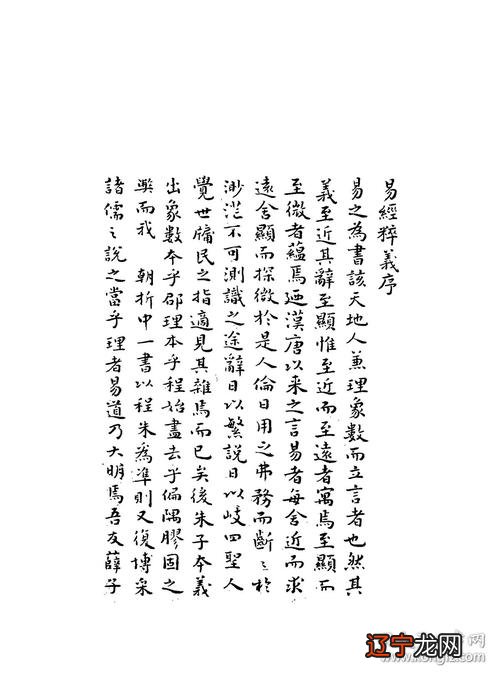 易經粹義序
易之為書該天地人兼理象數而立言者也然其
義至近其辭至顯惟至近而至遠者寓焉至顯而
至微者蘊焉迺漢唐以来之言易者每舍近而求
遠舍顯而探微於是人倫日用之弗務而斷〻於
渺茫不可測識之途辭日以繁說日以歧四聖人
覺世牖民之指適見其雜焉而已矣後朱子本義
出象數本乎邵理本乎程始盡去乎偏隅膠固之
獘而我 朝折中一書以程朱為準則又復博采
諸儒〻說之當乎理者易道乃大明焉吾友薛子
辽宁龙网
www.kongfz.com